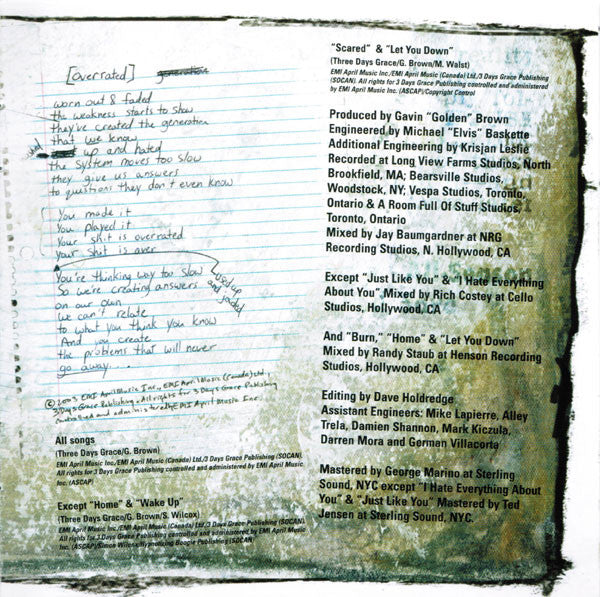 [overrated] generation
worn out & faded
the weakness starts to show
they've created the generation
that we know
up and hated
the system moves too slow
they give us answers
to questions they don't even know
You made it
You played it
Your shit is overrated
Your shit is over
You're thinking way too slow
So we're creating answers
on our own
we can't relate
to what you think you know
And you create
the problems that will never
go away....
used up
and jaded
© 2003 EMI April Music Inc., EMI April Music (Canada) Ltd.,
3 Days Grace Publishing. All rights for 3 Days Grace Publishing
controlled and administered by EMI April Music Inc.
All songs
(Three Days Grace/G. Brown)
EMI April Music Inc./EMI April Music (Canada) Ltd./3 Days Grace Publishing (SOCAN).
All rights for 3 Days Grace Publishing controlled and administered by EMI April Music
Inc. (ASCAP)
Except "Home" & "Wake Up"
(Three Days Grace/G. Brown/S. Wilcox)
EMI April Music Inc./EMI April Music (Canada) Ltd./3 Days Grace Publishing (SOCAN).
All rights for 3 Days Grace Publishing controlled and administered by EMI April Music
Inc. (ASCAP)/Simon Wilcox/Hypnotizing Boogie Publishing (SOCAN)
"Scared" & "Let You Down"
(Three Days Grace/G. Brown/M. Walst)
EMI April Music Inc./EMI April Music (Canada) Ltd./3 Days Grace Publishing
(SOCAN). All rights for 3 Days Grace Publishing controlled and administered
by EMI April Music Inc. (ASCAP)/Copyright Control
Produced by Gavin "Golden" Brown
Engineered by Michael "Elvis" Baskette
Additional Engineering by Krisjan Leslie
Recorded at Long View Farms Studios, North
Brookfield, MA; Bearsville Studios,
Woodstock, NY; Vespa Studios, Toronto,
Ontario & A Room Full Of Stuff Studios,
Toronto, Ontario
Mixed by Jay Baumgardner at NRG
Recording Studios, N. Hollywood, CA
Except "Just Like You" & "I Hate Everything
About You" Mixed by Rich Costey at Cello
Studios, Hollywood, CA
And "Burn," "Home" & "Let You Down"
Mixed by Randy Staub at Henson Recording
Studios, Hollywood, CA
Editing by Dave Holdredge
Assistant Engineers: Mike Lapierre, Alley
Trela, Damien Shannon, Mark Kiczula,
Darren Mora and German Villacorta
Mastered by George Marino at Sterling
Sound, NYC except "I Hate Everything About
You" & "Just Like You" Mastered by Ted
Jensen at Sterling Sound, NYC.